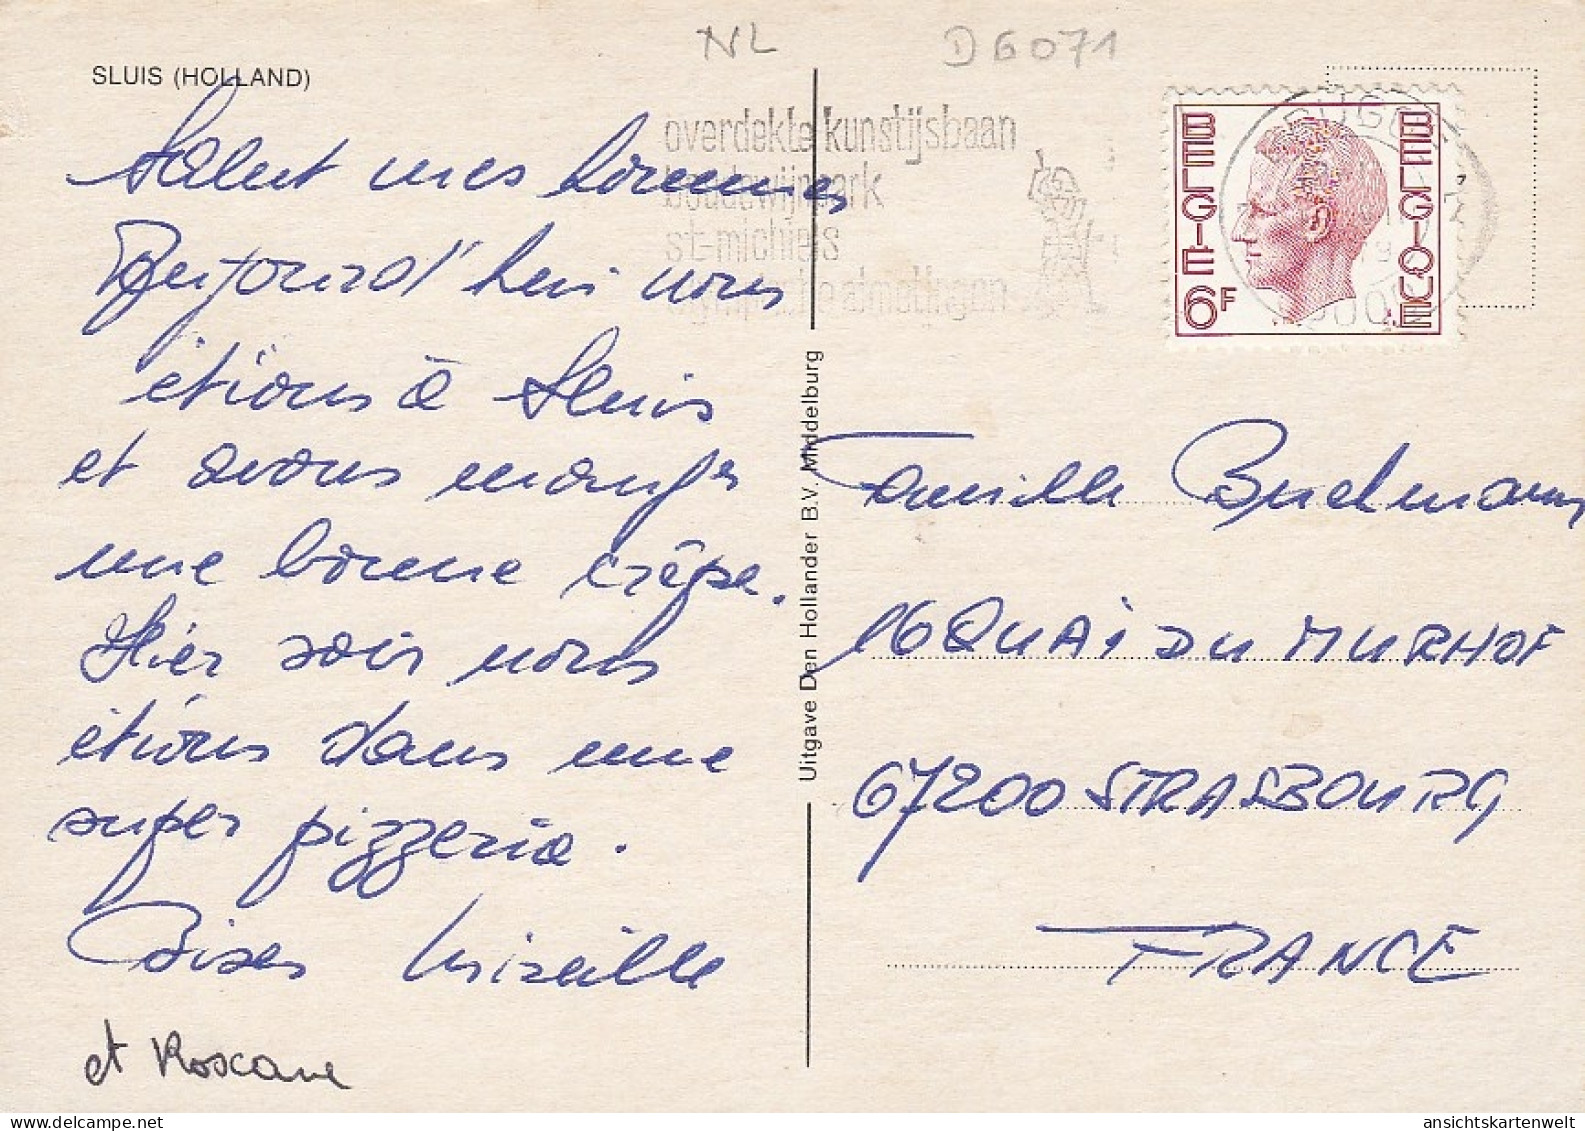 NL
D6071
SLUIS (HOLLAND)
overdekte kunstijsbaan
boudewijnpark
st-michiels
olympische afmetingen
BELGIE
BELGIQUE
6F
Salut mes hommes
Aujourd'hui nous
étions à Sluis
et avons mangé
une bonne crêpe.
Hier soir nous
étions dans une
super pizzeria.
Bises Mireille
et Roxane
Uitgave Den Hollander B.V. Middelburg
Famille
16 QUAI DU MURHOF
67200 STRASBOURG
FRANCE
ansichtskartenwelt